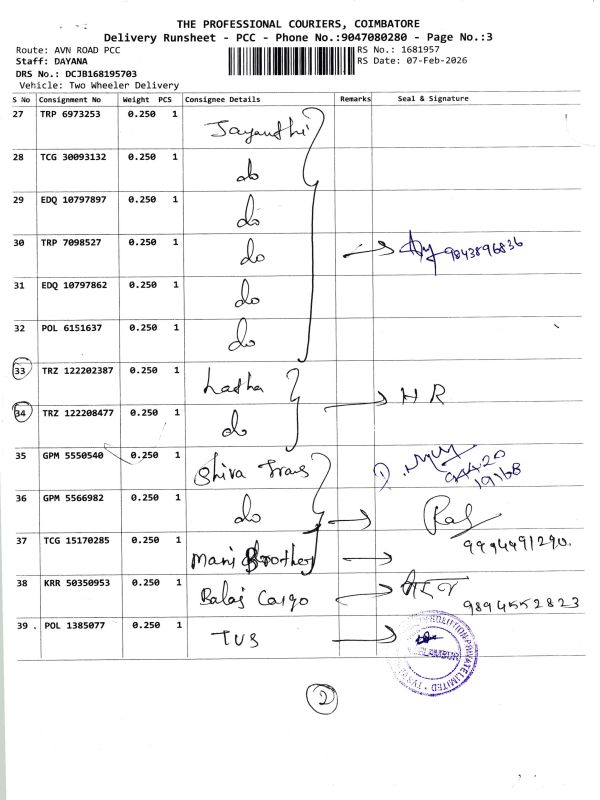 THE PROFESSIONAL COURIERS, COIMBATORE
Delivery Runsheet - PCC - Phone No.:9047080280 - Page No.:3
Route: AVN ROAD PCC RS No.: 1681957
Staff: DAYANA RS Date: 07-Feb-2026
DRS No.: DCJB168195703
Vehicle: Two Wheeler Delivery
S No Consignment No Weight PCS Consignee Details Remarks Seal & Signature
27 TRP 6973253 0.250 1 Jayanthi
28 TCG 30093132 0.250 1 do
29 EDQ 10797897 0.250 1 do
30 TRP 7098527 0.250 1 do 9843896836
31 EDQ 10797862 0.250 1 do
32 POL 6151637 0.250 1 do
33 TRZ 122202387 0.250 1 Latha HR
34 TRZ 122208477 0.250 1 do
35 GPM 5550540 0.250 1 Shiva Trans
36 GPM 5566982 0.250 1 do
37 TCG 15170285 0.250 1 Mani Brothers
38 KRR 50350953 0.250 1 Balaj Cargo 9894552823
39 . POL 1385077 0.250 1 TVS
2